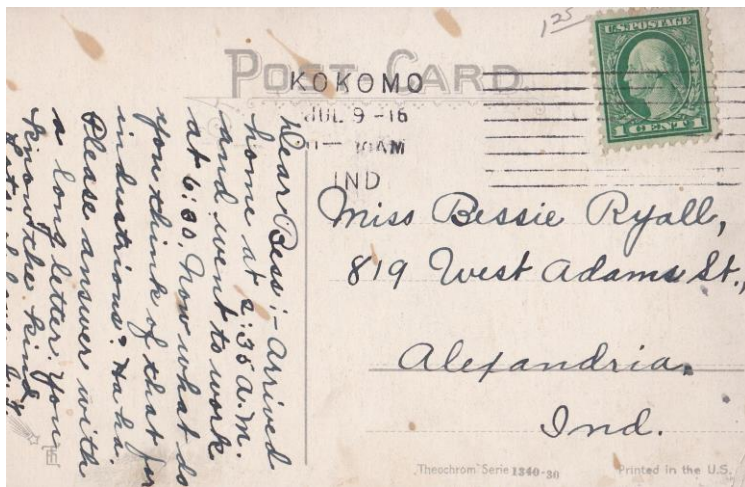 1.25
U.S. POSTAGE
1 CENT 1
POST CARD
KOKOMO
JUL 9 -16
AM
IND
Dear Bess:- Arrived
home at 2:35 A.M.
and went to work
at 6:30. Now what do
you think of that for
industrious? Ha ha
Please answer with
a long letter. You
know the kind
Miss Bessie Ryall,
819 West Adams St.,
Alexandria,
Ind.
"Theochrom" Serie 1340-30
Printed in the U.S.